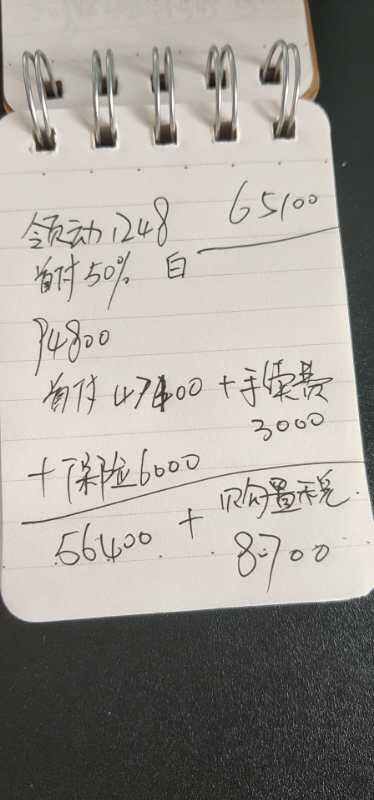 领动1248 65100
首付50% 白
94800
首付47400+手续费
3000
+保险6000
56400+购置税
8700